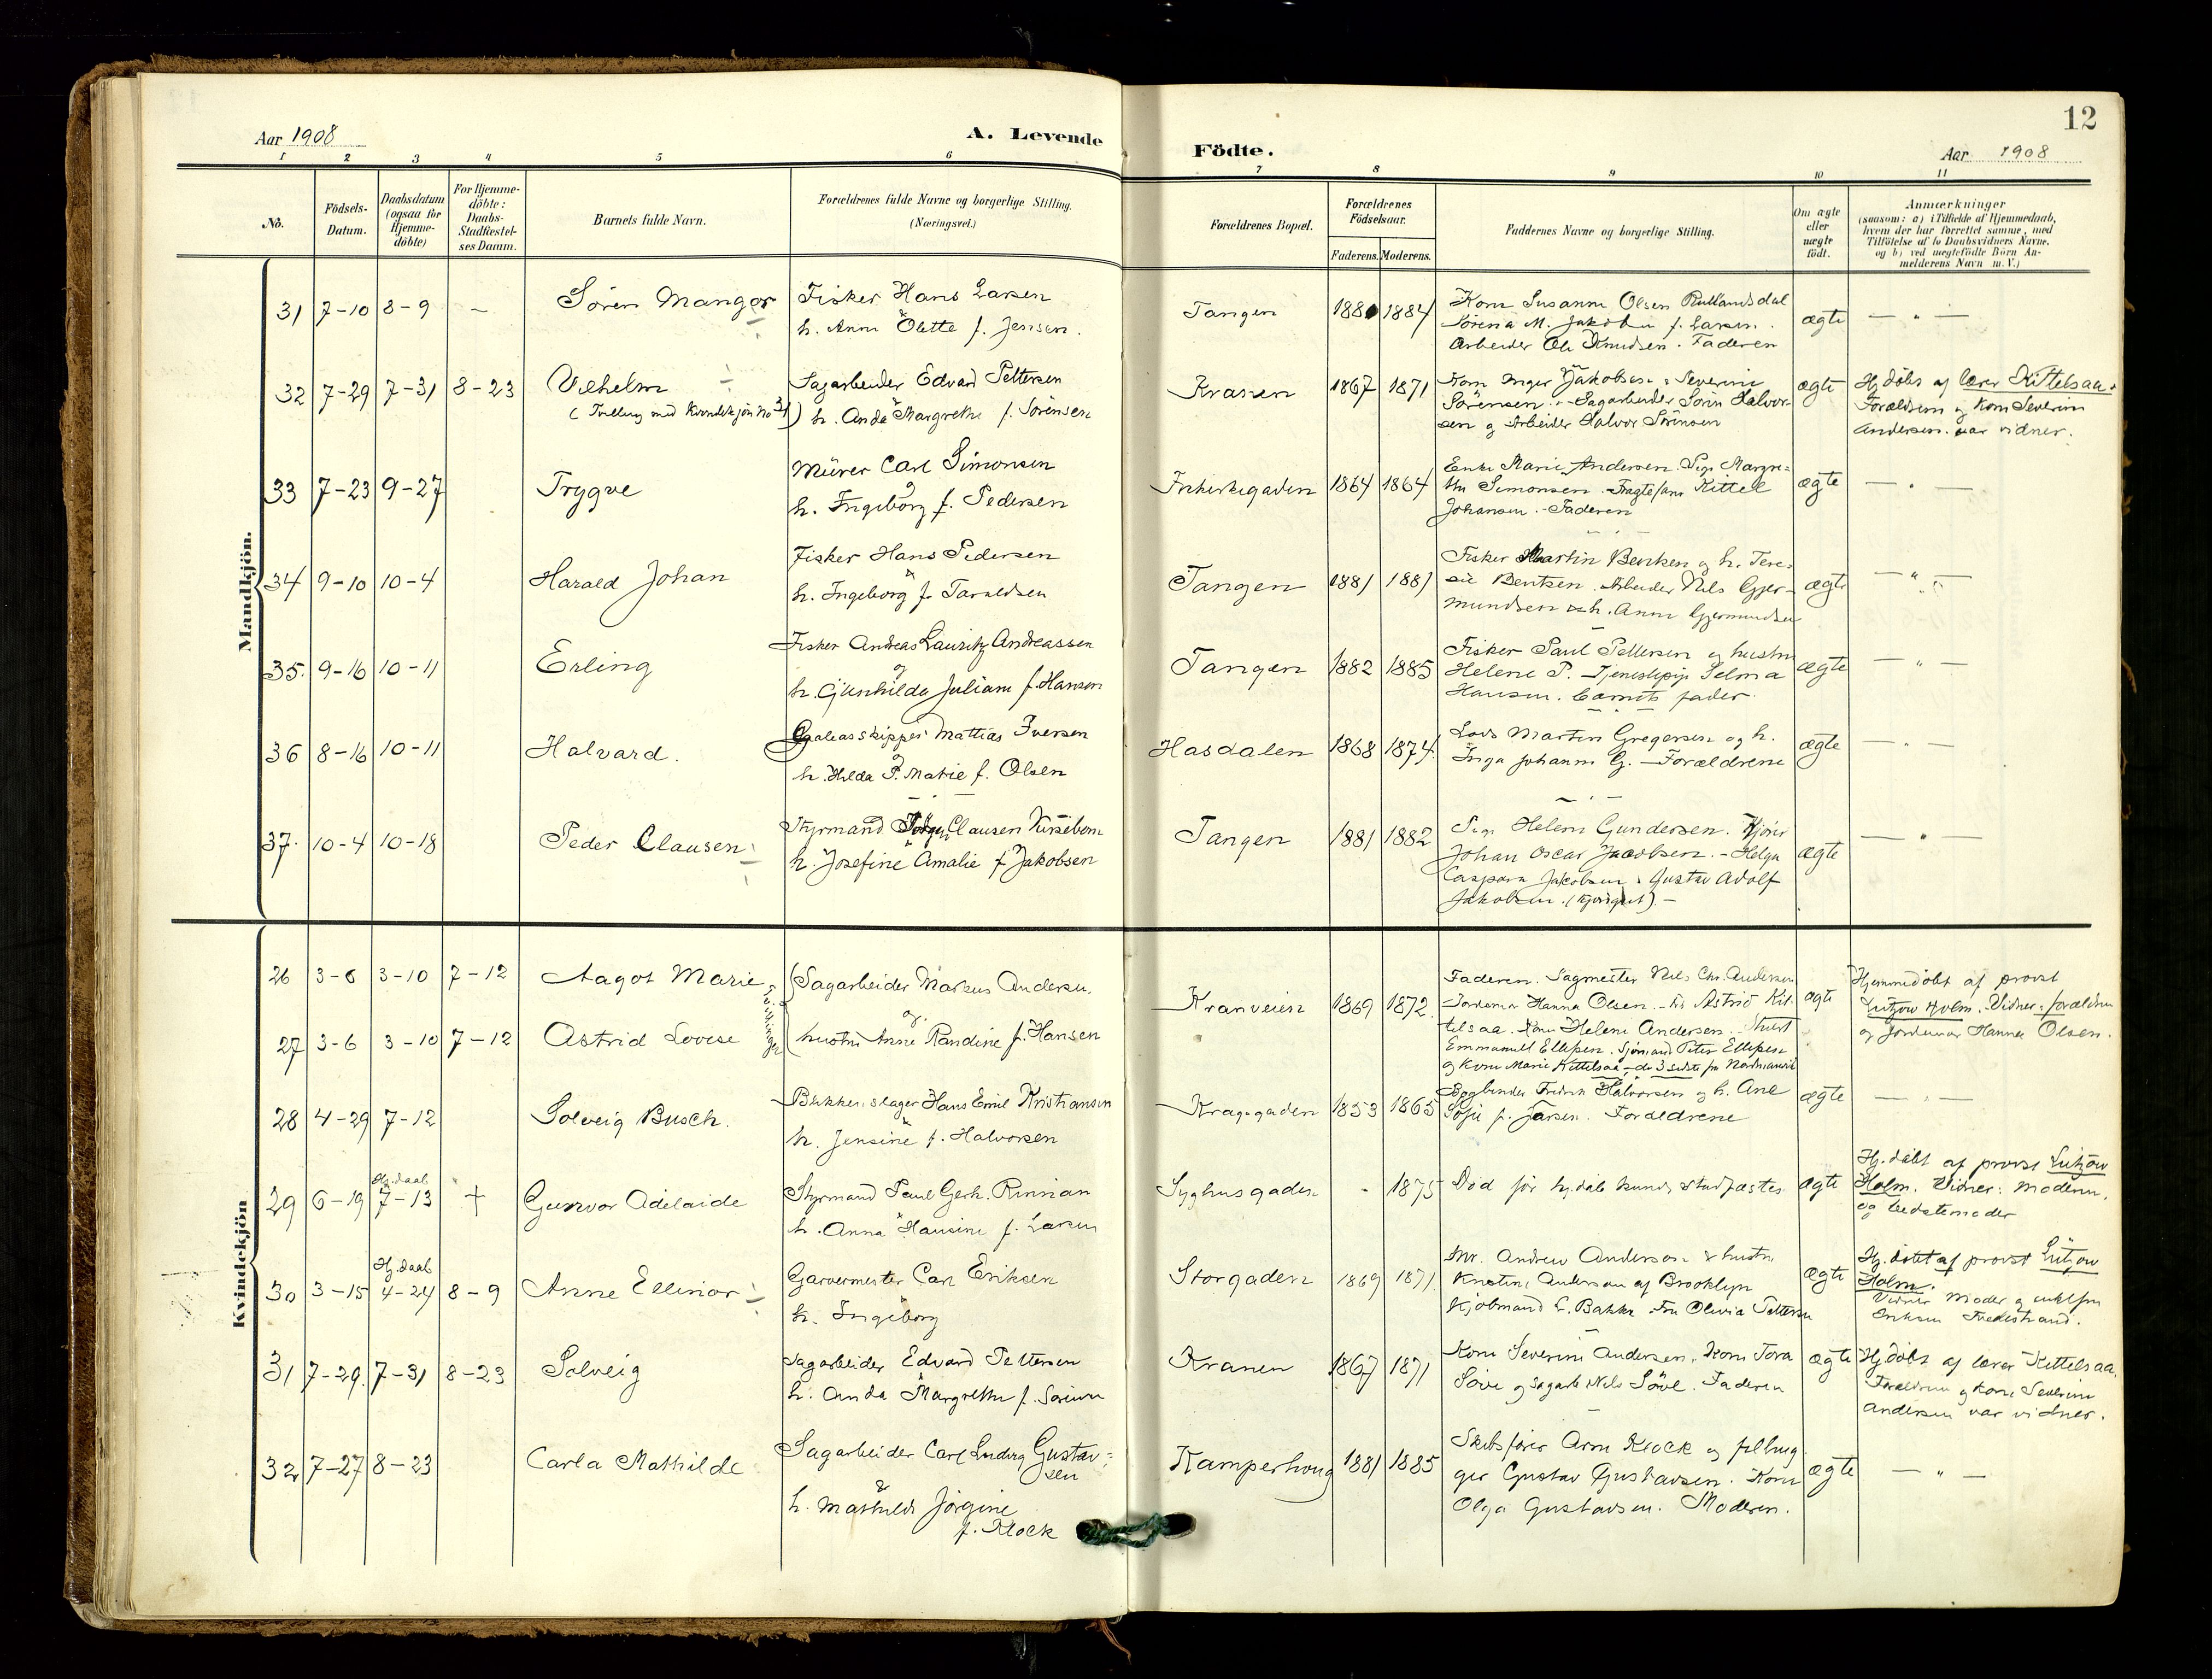 12
Aar 1908
A. Levende
Födte.
Aar 1908
1 2 3 4 5 6 7 8 9 10 11
No.
Födsels-
Datum.
Daabsdatum
(ogsaa for
Hjemme-
döbte)
For Hjemme-
döbte:
Daabs-
Stadfæstel-
ses Datum.
Barnets fulde Navn.
Forældrenes fulde Navne og borgerlige Stilling.
(Næringsvei.)
Forældrenes Bopæl.
Forældrenes
Födselsaar.
Faderens. Moderens.
Faddernes Navne og borgerlige Stilling.
Om ægte
eller
uægte
födt.
Anmærkninger
(saasom: a) i Tilfælde af Hjemmedaab,
hvem der har forrettet samme, med
Tilföielse af to Daabsvidners Navne.
og b) ved uægtefödte Börn An-
melderens Navn m. V.)
Mandkjön.
31 7-10 8-9 -
Sören Mangor
Fisker Hans Larsen
&
h. Anne Olette f. Jensen.
Tangen
1880 1884
Kone Susanne Olsen Rutlandsdal
Sörena M. Jakobsen f. Larsen.
Arbeider Ole Knudsen. Faderen
ægte
— " —
32 7-29 7-31 8-23
Vilhelm
(Tvilling med Kvindekjön No 31)
Sagarbeider Edvard Pettersen
&
h. Anda Margrethe f. Sörensen
Kranen
1867 1871
Kone Inger Jakobsen. Severine
Sörensen. - Sagarbeider Sörin Halvor-
sen og Arbeider Halvor Sörensen
ægte
Hj. döbt af lærer Kittelsaa.
Forældrene og Kone Severine
Andersen. var vidner.
33 7-23 9-27
Trygve
Mürer Carl Simonsen
&
h. Ingeborg f. Pedersen
1864 1864
Enke Marie Andersen. Pige Margre-
the Simonsen. Kittel
Johansen. - Faderen
ægte
— " —
34 9-10 10-4
Harald Johan
Fisker Hans Pedersen
&
h. Ingeborg f. Taraldsen
Tangen
1881 1881
Fisker Martin Bentsen og h. Tere-
sie Bentsen. Arbeider Nils Gjer-
mundsen & h. Anne Gjermundsen
ægte
— " —
35. 9-16 10-11
Erling
Fisker Andreas Lauritz Andreassen
og
h. Gunhilda Juliane f. Hansen
Tangen
1882 1885
Fisker Paul Pettersen og hustru
Helene P. Tjenestepige Selma
Hansen. Barnets fader.
ægte
— " —
36 8-16 10-11
Halvard.
Galeasskipper Mattias Iversen
&
h. Hilda P. Marie f. Olsen
Hasdalen
1868 1874.
Lods Martin Gregersen og h.
Inga Johanne G. - Forældrene
ægte
— " —
37. 10-4 10-18
Peder Clausen
Styrmand Clausen Kirsebom
&
h. Josefine Amalie f. Jakobsen
Tangen
1881 1882
Pige Helene Gundersen.
Johan Oscar Jacobsen. - Helga
Caspara Jakobsen. Gustav Adolf
Jakobsen.
ægte
— " —
Kvindekjön
26 3-6 3-10 7-12
Aagot Marie
Tvillinger
Sagarbeider Markus Andersen.
og.
hustru Anne Randine f. Hansen
Kranveien
1869 1872.
Faderen. Sagmester Nils Chr. Andersen
Jordemor Hanna Olsen. - Astrid Kit-
telsaa. Kone Helene Andersen. Stuert
Emmanuell Ellefsen. Sjömand Peter Ellefsen
og Kone Marie Kittelsaa - de 3 sidste fra
ægte
Hjemmedöbt af provst
Lützow Holm. Vidner: forældrene
og Jordemor Hanna Olsen.
27 3-6 3-10 7-12
Astrid Lovise
28 4-29 7-12
Solveig Busch.
Hans Emil Kristiansen
&
h. Jensine f. Halvorsen
Kragsgaden
1853 1865
Fredrik Halvorsen og h. Ane
Sofie f. Jarsen. Forældrene
ægte
— " —
29 6-19 Hj. daab 7-13 †
Gunvor Adelaide
Styrmand Paul Gerh. Rinnan
&
h. Anna Hansine f. Larsen
Syghusgaden
- 1875
Död för hj. daab kunde stadfæstes
ægte
Hj. döbt af provst Lützow
Holm. Vidner: Moderen,
og bedstemoder
30 3-15 Hj. daab 4-24 8-9
Anne Ellinor
Garvermester Carl Eriksen
&
h. Ingeborg
Storgaden
1869 1871.
Mr. Andrew Anderson & hustru
Kristine Anderson af Brooklyn
Kjöbmand L. Bakke. Fru Olivia Pettersen
ægte
Hj. döbt af provst Lützow
Holm.
Vidner Moder og enkefru
Eriksen Tvedestrand.
31 7-29. 7-31 8-23
Solveig
Sagarbeider Edvard Pettersen
&
h. Anda Margrethe f. Sörensen
Kranen
1867 1871
Kone Severine Andersen. Kone Tora
Söve og Sagarb. Nils Söve. Faderen
ægte
Hj. döbt af lærer Kittelsaa.
Forældrene og Kone Severine
Andersen var vidner.
32 7-27 8-23
Carla Mathilde
Sagarbeider Carl Ludvig Gustav-
sen
&
h. Mathilde Jörgine
f. Klock
Kamperhoug
1881 1885
Skibsförer Arne Klock og filhug-
ger Gustav Gustavsen. Kone
Olga Gustavsen. Moderen.
ægte
— " —